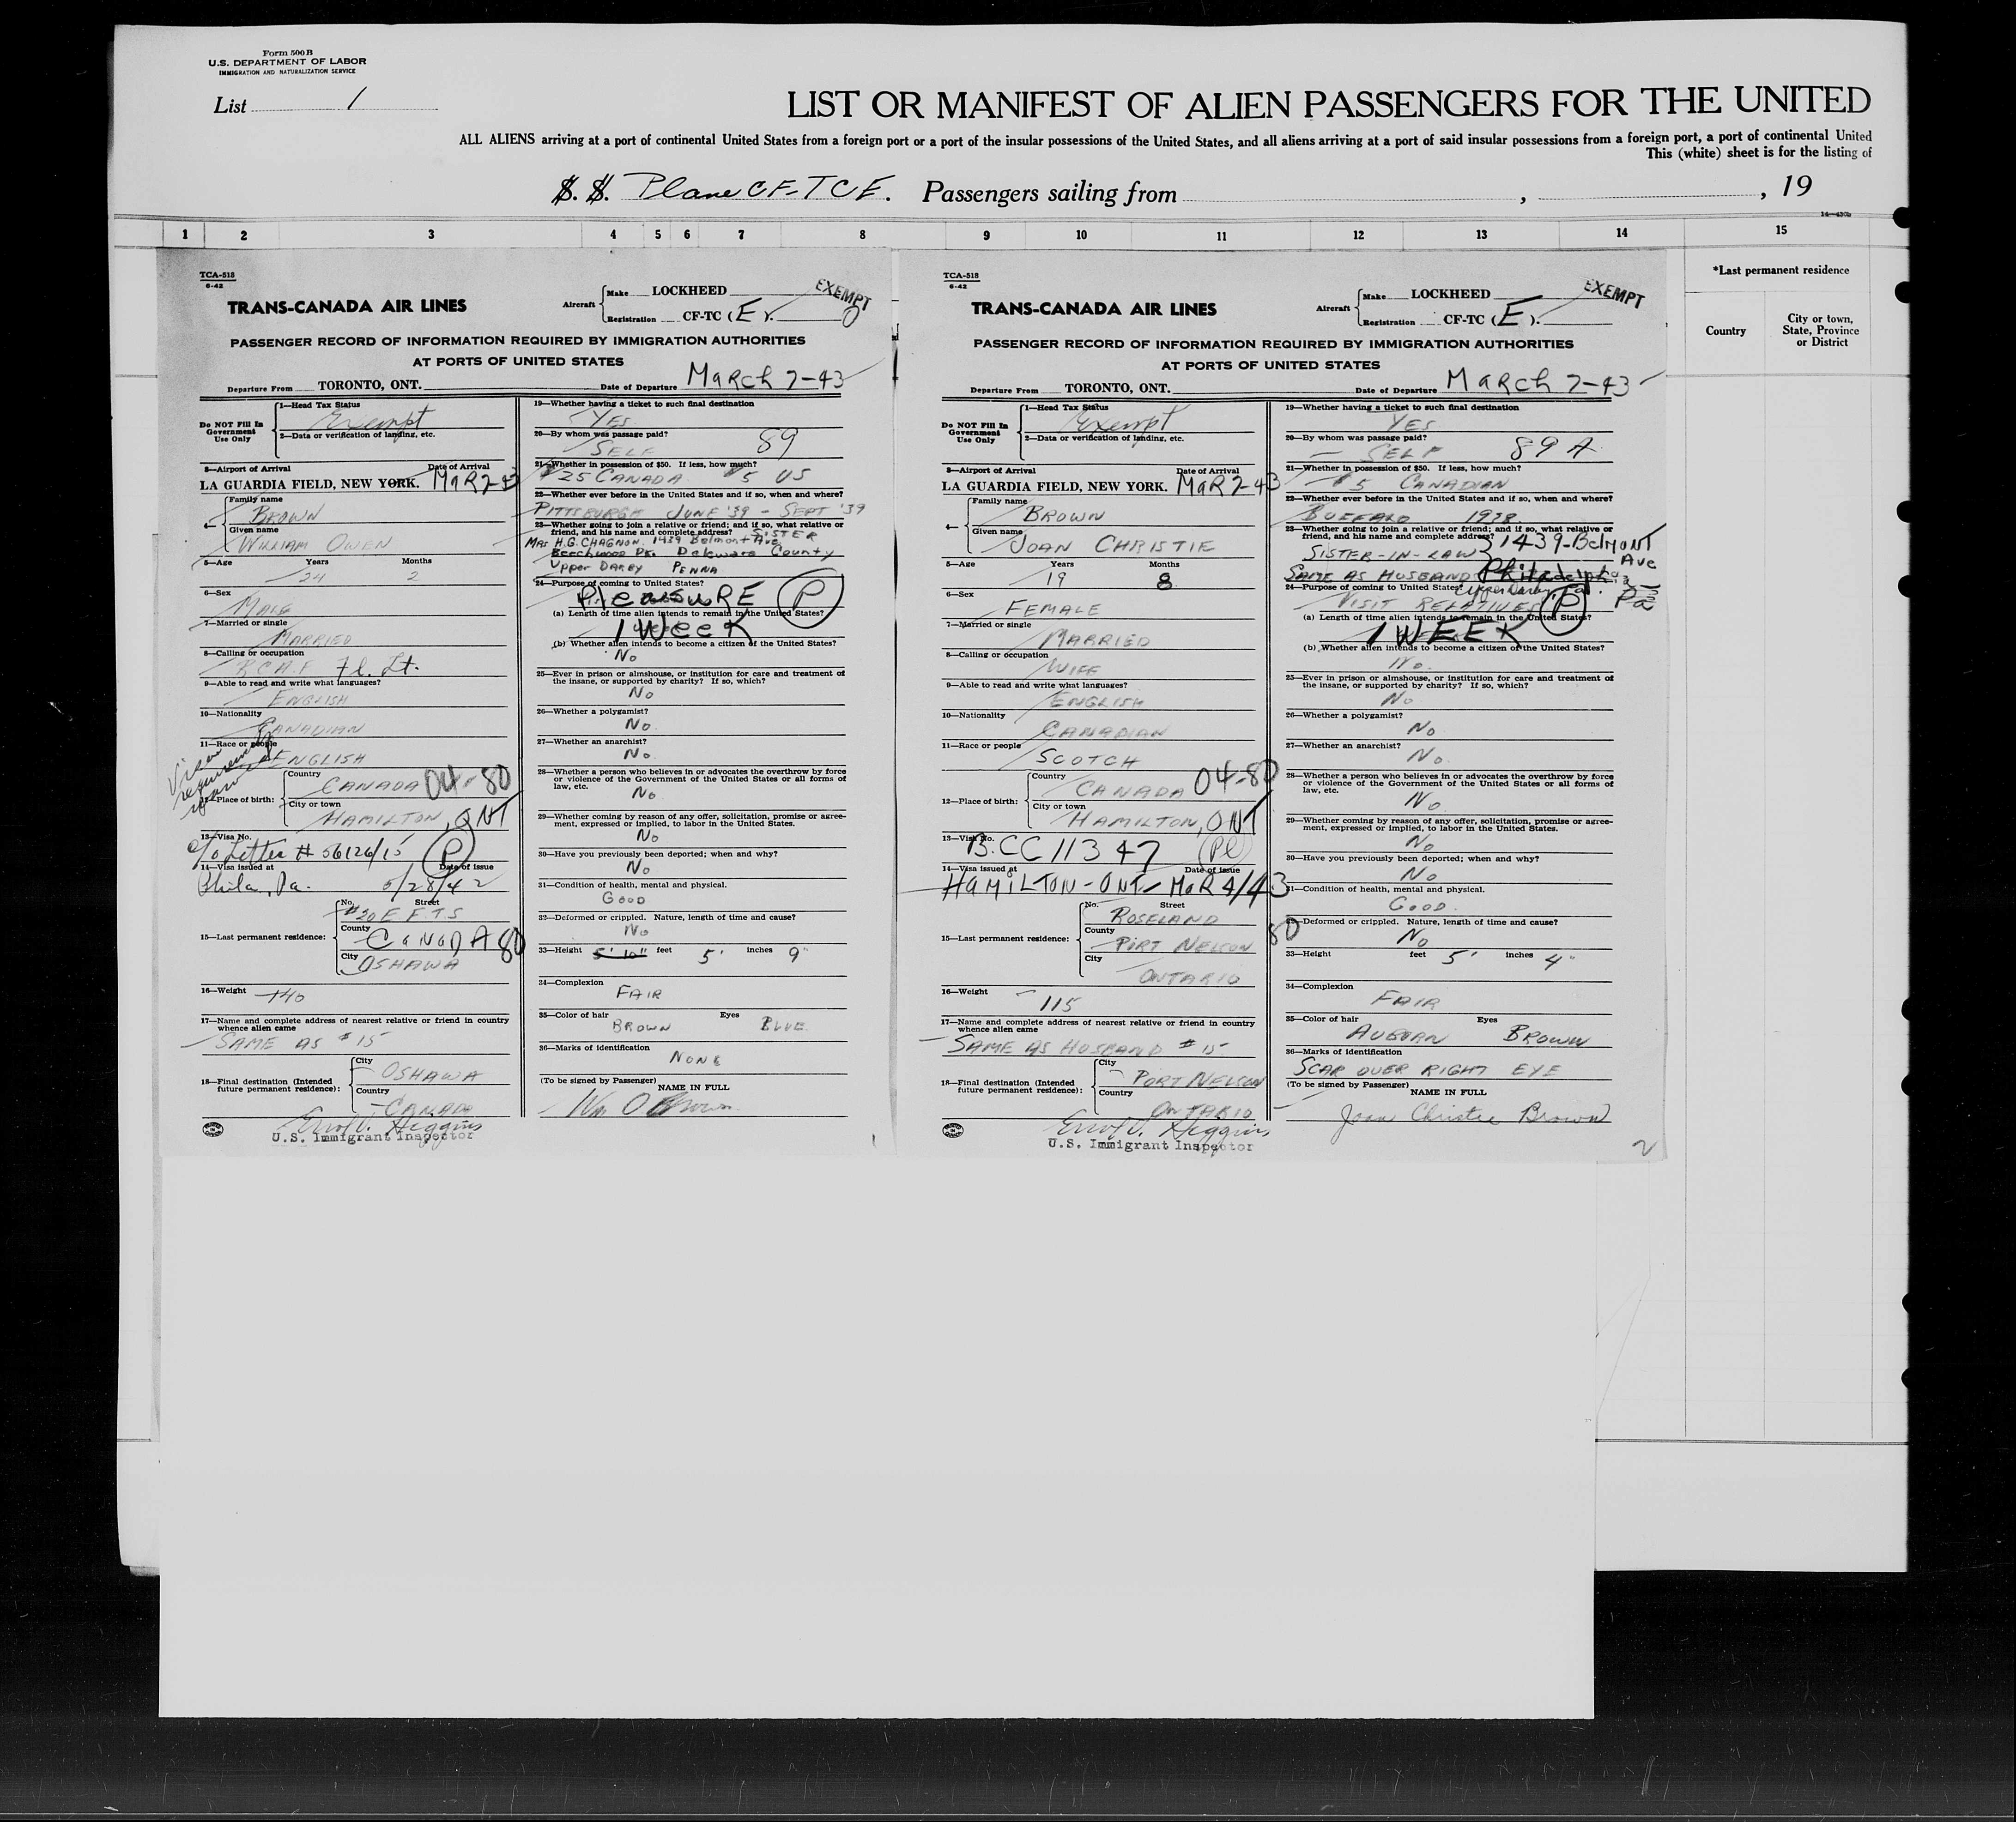 Form 500 B
U.S. DEPARTMENT OF LABOR
IMMIGRATION AND NATURALIZATION SERVICE
List 1
LIST OR MANIFEST OF ALIEN PASSENGERS FOR THE UNITED
ALL ALIENS arriving at a port of continental United States from a foreign port or a port of the insular possessions of the United States, and all aliens arriving at a port of said insular possessions from a foreign port, a port of continental United
This (white) sheet is for the listing of
S. S. Plane CF-TCE. Passengers sailing from , , 19
1 2 3 4 5 6 7 8 9 10 11 12 13 14 15
*Last permanent residence
Country
City or town, State, Province or District
TCA-518
6-42
TRANS-CANADA AIR LINES
Aircraft Make LOCKHEED
Registration CF-TC (E).
EXEMPT
PASSENGER RECORD OF INFORMATION REQUIRED BY IMMIGRATION AUTHORITIES
AT PORTS OF UNITED STATES
Departure From TORONTO, ONT. Date of Departure MARCH 7-43
Do NOT Fill In Government Use Only
1—Head Tax Status
Exempt
2—Data or verification of landing, etc.
3—Airport of Arrival Date of Arrival
LA GUARDIA FIELD, NEW YORK. MAR 7-43
4— Family name
BROWN
Given name
WILLIAM OWEN
5—Age Years Months
24 2
6—Sex
MALE
7—Married or single
MARRIED
8—Calling or occupation
R.C.A.F. Fl. Lt.
9—Able to read and write what languages?
ENGLISH
10—Nationality
CANADIAN
11—Race or people
ENGLISH
12—Place of birth: Country
CANADA 04-80
City or town
HAMILTON, ONT
13—Visa No.
c/o Letter # 56126/15 P
14—Visa issued at Date of issue
Phila, Pa. 5/28/42
15—Last permanent residence: No. Street
#20 E F T S
County
CANADA 80
City
OSHAWA
16—Weight 140
17—Name and complete address of nearest relative or friend in country whence alien came
SAME AS #15
18—Final destination (Intended future permanent residence): City
OSHAWA
Country
CANADA
U.S. Immigrant Inspector
19—Whether having a ticket to such final destination
YES
20—By whom was passage paid?
SELF 89
21—Whether in possession of $50. If less, how much?
$25 CANADA $5 US
22—Whether ever before in the United States and if so, when and where?
PITTSBURGH JUNE '39 - SEPT '39
23—Whether going to join a relative or friend; and if so, what relative or friend, and his name and complete address? SISTER
MRS H.G. CHAGNON. 1439 Belmont Ave
Beechwood Pk. Delaware County
UPPER DARBY PENNA
24—Purpose of coming to United States?
PleasuRE P
(a) Length of time alien intends to remain in the United States?
1 WeeK
(b) Whether alien intends to become a citizen of the United States?
No
25—Ever in prison or almshouse, or institution for care and treatment of the insane, or supported by charity? If so, which?
No
26—Whether a polygamist?
No
27—Whether an anarchist?
No
28—Whether a person who believes in or advocates the overthrow by force or violence of the Government of the United States or all forms of law, etc.
No
29—Whether coming by reason of any offer, solicitation, promise or agreement, expressed or implied, to labor in the United States.
No
30—Have you previously been deported; when and why?
No
31—Condition of health, mental and physical.
GOOD
32—Deformed or crippled. Nature, length of time and cause?
No
33—Height 5' 10" feet 5' inches 9"
34—Complexion
FAIR
35—Color of hair Eyes
BROWN BLUE
36—Marks of identification
NONE
(To be signed by Passenger) NAME IN FULL
Wm O Brown
TCA-518
6-42
TRANS-CANADA AIR LINES
Aircraft Make LOCKHEED
Registration CF-TC (E).
EXEMPT
PASSENGER RECORD OF INFORMATION REQUIRED BY IMMIGRATION AUTHORITIES
AT PORTS OF UNITED STATES
Departure From TORONTO, ONT. Date of Departure MARCH 7-43
Do NOT Fill In Government Use Only
1—Head Tax Status
Exempt
2—Data or verification of landing, etc.
3—Airport of Arrival Date of Arrival
LA GUARDIA FIELD, NEW YORK. MAR 7-43
4— Family name
BROWN
Given name
JOAN CHRISTIE
5—Age Years Months
19 8
6—Sex
FEMALE
7—Married or single
MARRIED
8—Calling or occupation
WIFE
9—Able to read and write what languages?
ENGLISH
10—Nationality
CANADIAN
11—Race or people
SCOTCH
12—Place of birth: Country
CANADA 04-80
City or town
HAMILTON, ONT
13—Visa No.
B.CC 11347 (Pl)
14—Visa issued at Date of issue
HAMILTON-ONT- MAR 4/43
15—Last permanent residence: No. Street
ROSELAND
County
PORT NELSON 80
City
ONTARIO
16—Weight
115
17—Name and complete address of nearest relative or friend in country whence alien came
SAME AS HUSBAND #15
18—Final destination (Intended future permanent residence): City
PORT NELSON
Country
ONTARIO
U.S. Immigrant Inspector
19—Whether having a ticket to such final destination
YES
20—By whom was passage paid?
SELF 89 A
21—Whether in possession of $50. If less, how much?
$5 CANADIAN
22—Whether ever before in the United States and if so, when and where?
BUFFALO 1938.
23—Whether going to join a relative or friend; and if so, what relative or friend, and his name and complete address? 1439-Belmont Ave
SISTER-IN-LAW
SAME AS HUSBANDS Philadelphia
Upper Darby, Pa.
24—Purpose of coming to United States?
VISIT RELATIVES P
(a) Length of time alien intends to remain in the United States?
1 WEEK
(b) Whether alien intends to become a citizen of the United States?
No.
25—Ever in prison or almshouse, or institution for care and treatment of the insane, or supported by charity? If so, which?
No
26—Whether a polygamist?
No
27—Whether an anarchist?
No.
28—Whether a person who believes in or advocates the overthrow by force or violence of the Government of the United States or all forms of law, etc.
No
29—Whether coming by reason of any offer, solicitation, promise or agreement, expressed or implied, to labor in the United States.
No
30—Have you previously been deported; when and why?
No
31—Condition of health, mental and physical.
GOOD.
32—Deformed or crippled. Nature, length of time and cause?
No
33—Height feet 5' inches 4"
34—Complexion
FAIR
35—Color of hair Eyes
AUBURN BROWN
36—Marks of identification
SCAR OVER RIGHT EYE
(To be signed by Passenger) NAME IN FULL
Joan Christie Brown
2